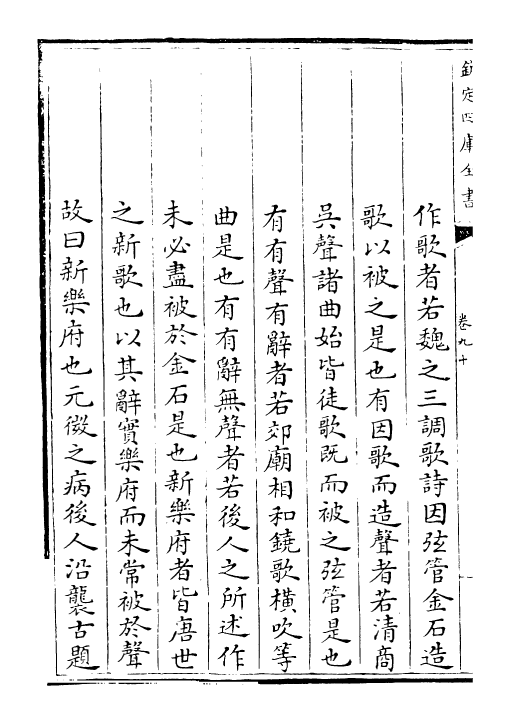 欽定四庫全書
卷九十
作歌者若魏之三調歌詩因弦管金石造
歌以被之是也有因歌而造聲者若清商
吳聲諸曲始皆徒歌既而被之弦管是也
有有聲有辭者若郊廟相和鐃歌橫吹等
曲是也有有辭無聲者若後人之所述作
未必盡被於金石是也新樂府者皆唐世
之新歌也以其辭實樂府而未常被於聲
故曰新樂府也元微之病後人沿襲古題